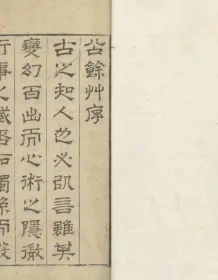 公餘艸序
古之知人也必以言雖其
變幻百出而心術之隱微
行事之臧否